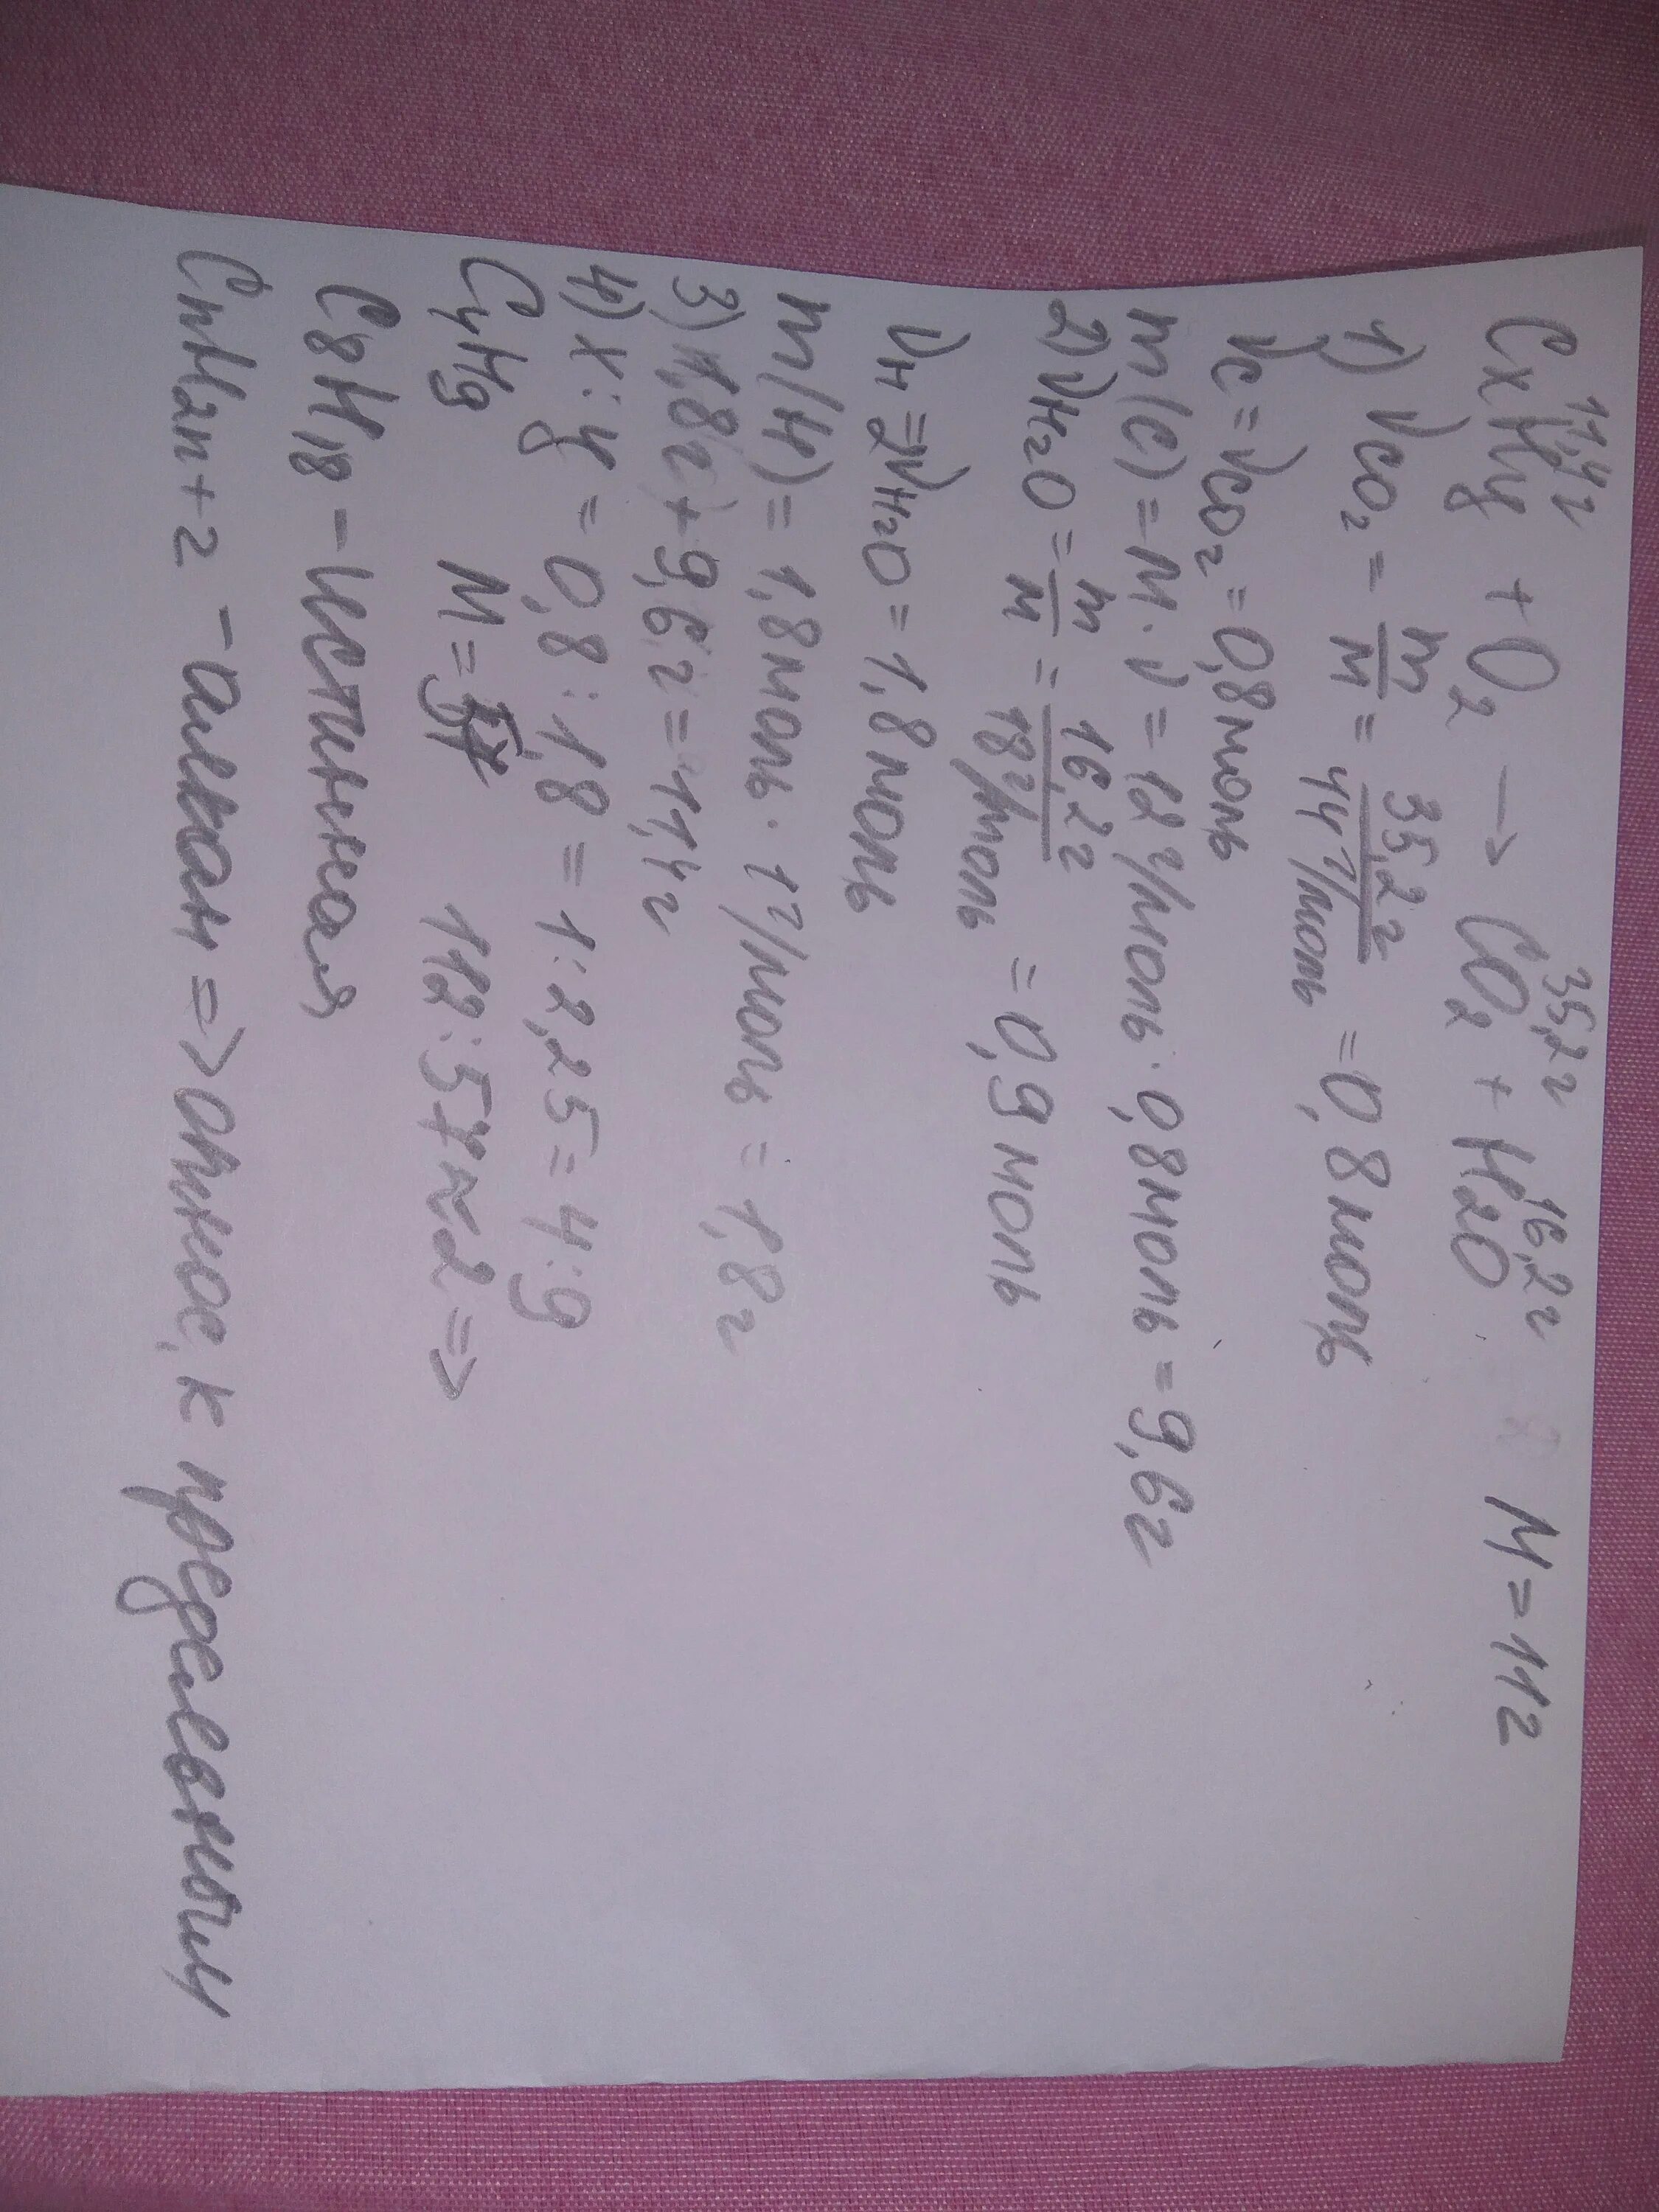 11,4г 35,2г 16,2г
CxHy + O2 → CO2 + H2O M = 112
1) νCO2 = m/M = 35,2г/44г/моль = 0,8моль
νC = νCO2 = 0,8моль
m(C) = M · ν = 12г/моль · 0,8моль = 9,6г
2) νH2O = m/M = 16,2г/18г/моль = 0,9моль
νH = 2νH2O = 1,8моль
m(H) = 1,8моль · 1г/моль = 1,8г
3) 1,8г + 9,6г = 11,4г
4) x : y = 0,8 : 1,8 = 1 : 2,25 = 4 : 9
C4H9 M = 57 112 : 57 ≈ 2 =>
C8H18 – истинная
CnH2n+2 – алкан => относ, к предельным